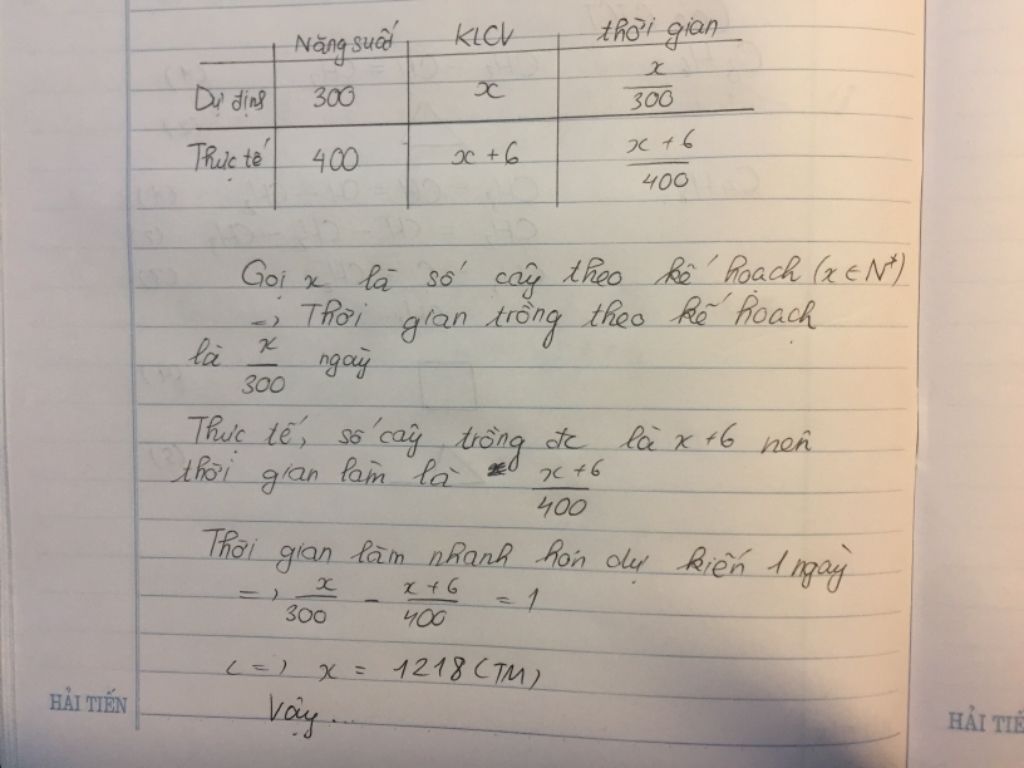 Năng suất KLCV thời gian
Dự định 300 x x/300
Thực tế 400 x + 6 x + 6/400
Gọi x là số cây theo kế hoạch (x ∈ N*)
=> Thời gian trồng theo kế hoạch
là x/300 ngày
Thực tế, số cây trồng đc là x + 6 nên
thời gian làm là x + 6/400
Thời gian làm nhanh hơn dự kiến 1 ngày
=> x/300 - x + 6/400 = 1
<=> x = 1218 (TM)
Vậy...
HẢI TIẾN
HẢI TIẾ